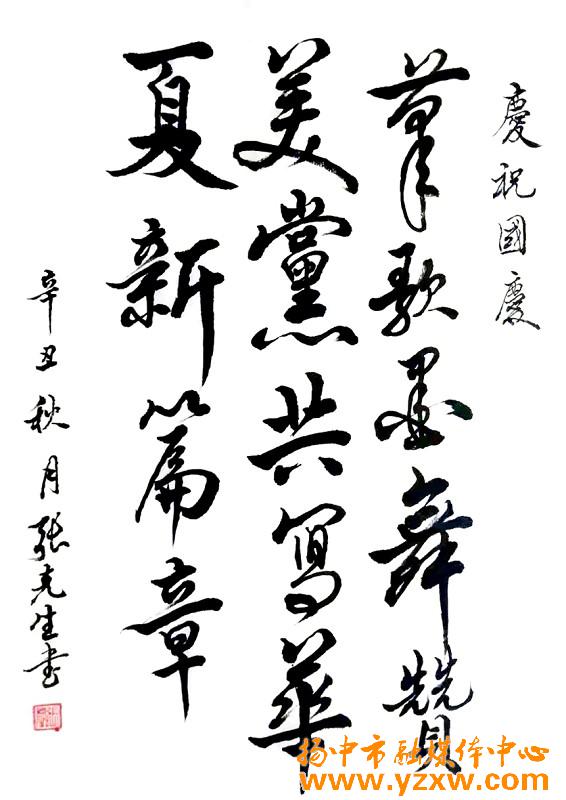 慶祝國慶
筆歌墨舞贊
美黨共寫華
夏新篇章
辛丑秋月張克生书
扬中市融媒体中心
www.yzxw.com